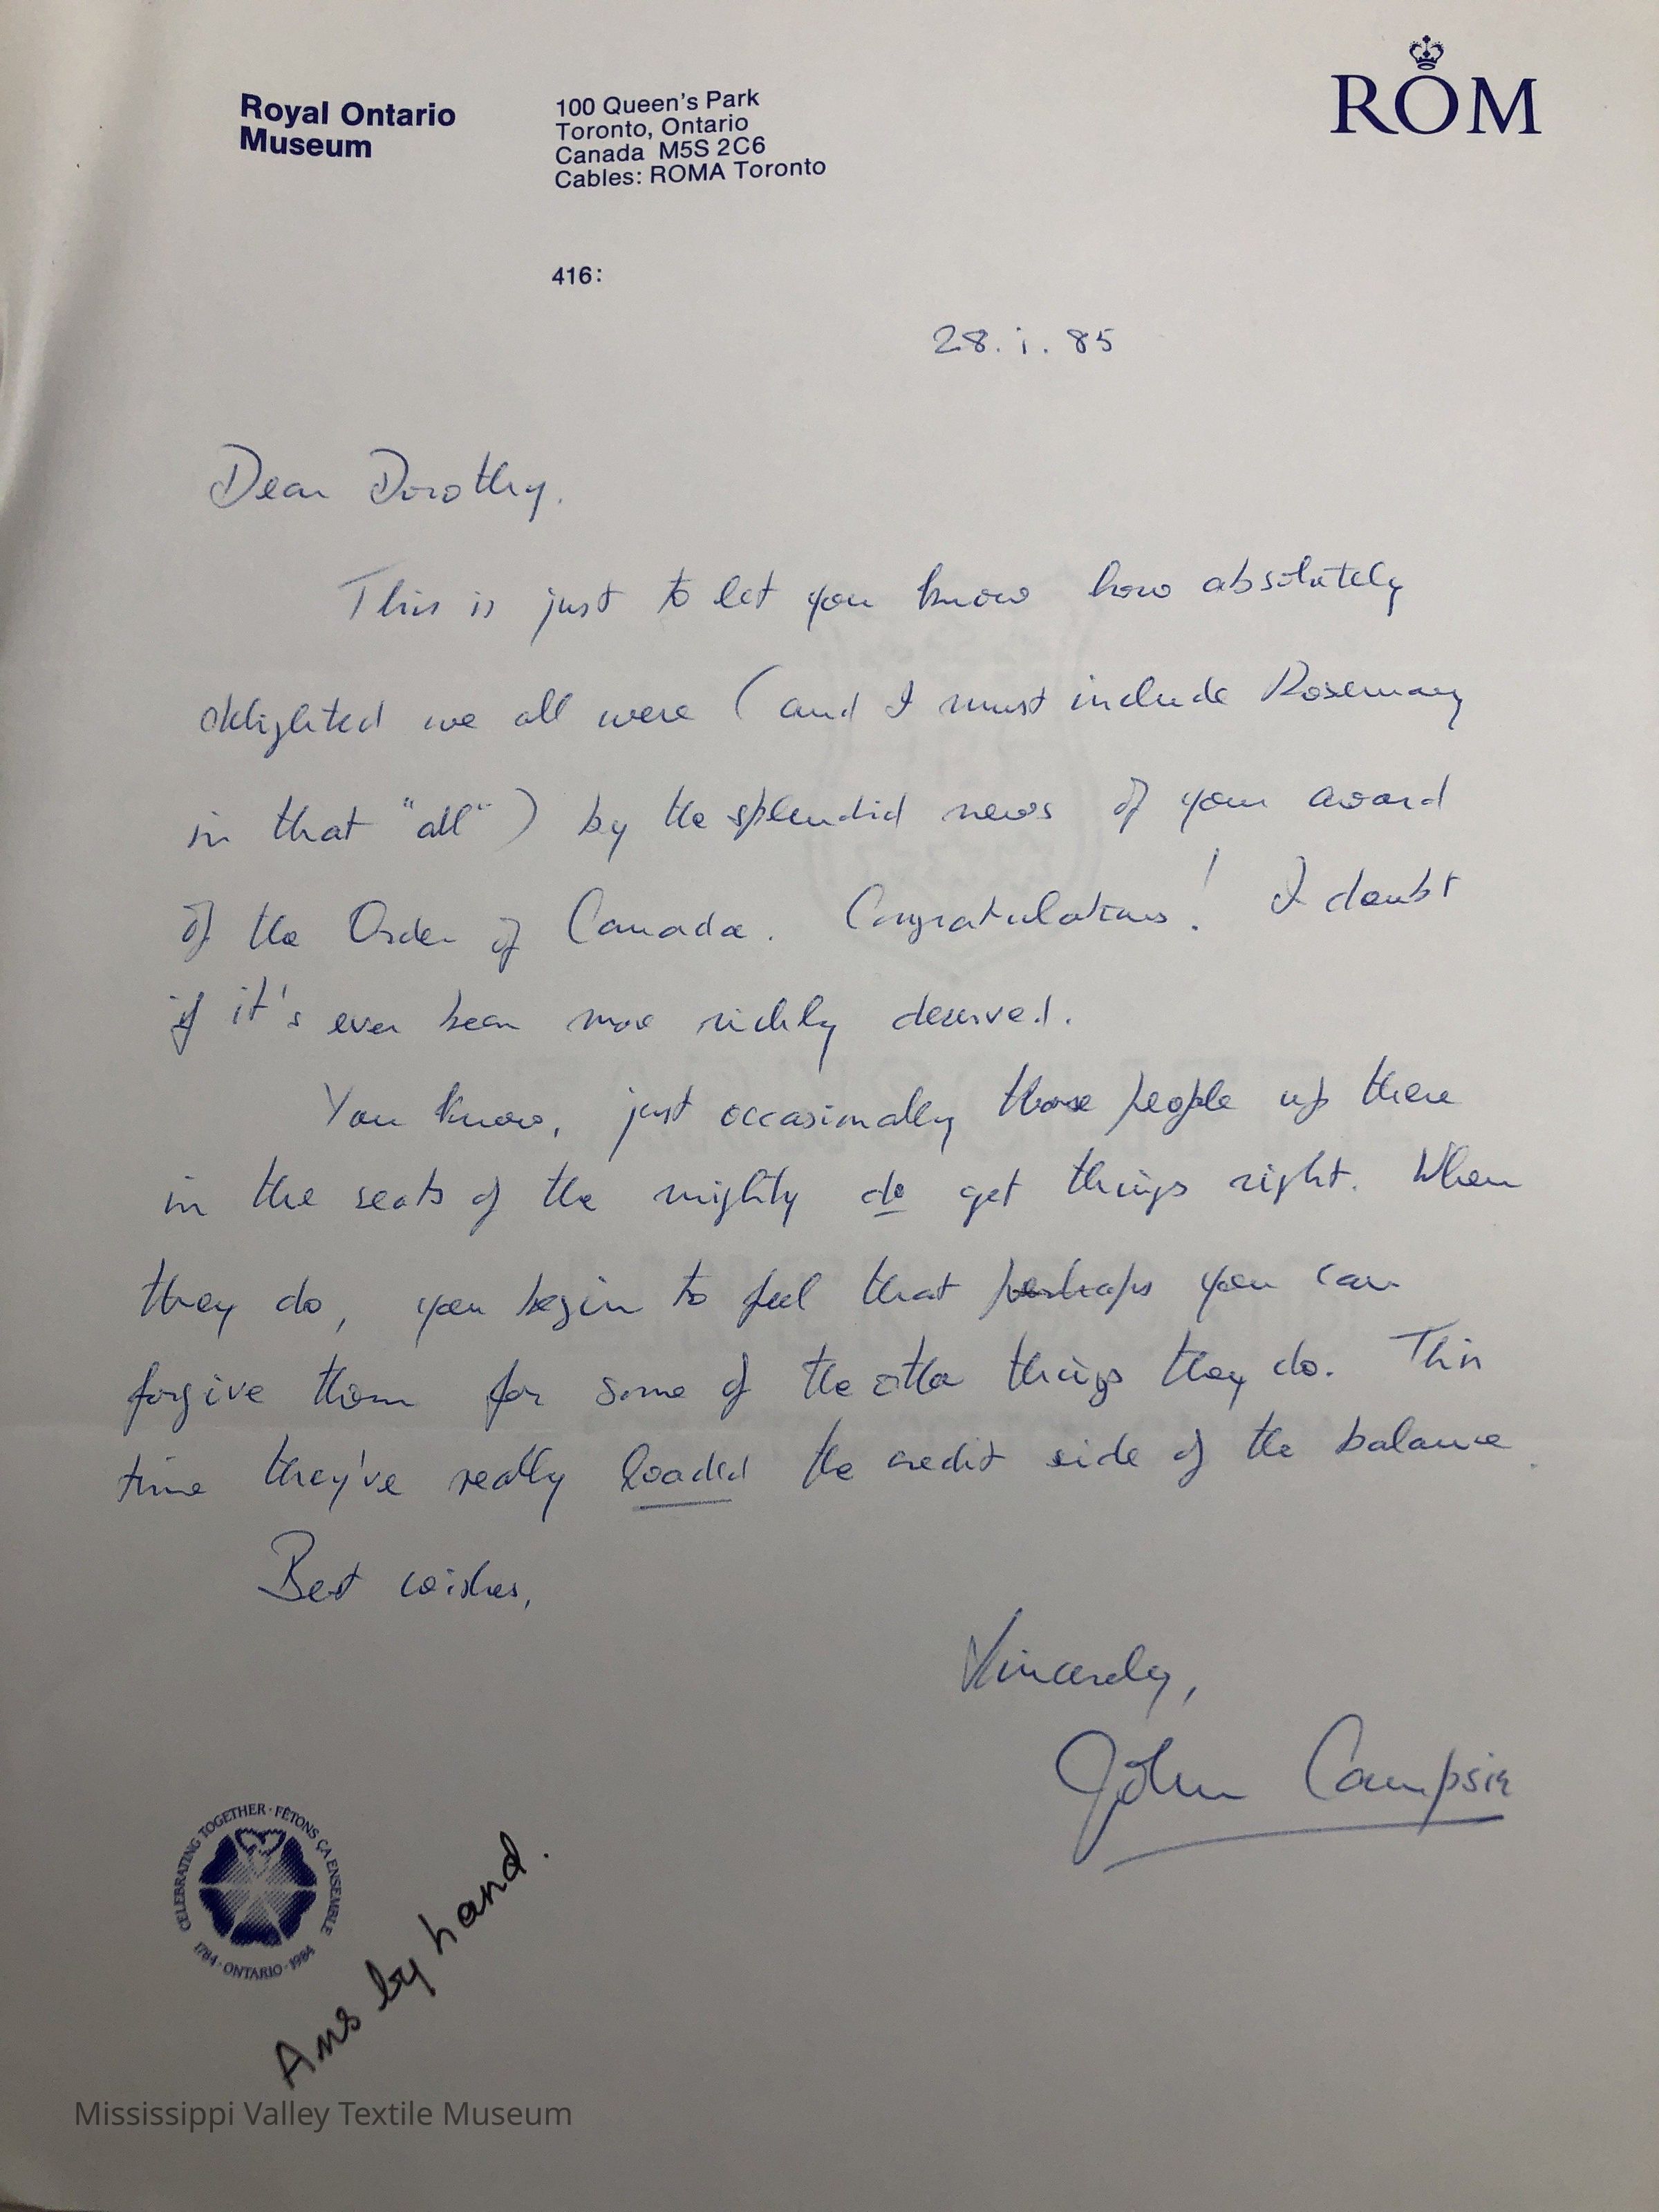 Royal Ontario
Museum
100 Queen's Park
Toronto, Ontario
Canada M5S 2C6
Cables: ROMA Toronto
416:
ROM
28. i. 85
Dear Dorothy.
This is just to let you know how absolutely
delighted we all were (and I must include Rosemary
in that "all") by the splendid news of your award
of the Order of Canada. Congratulations! I doubt
if it's ever been more richly deserved.
You know, just occasionally those people up there
in the seats of the mighty do get things right. When
they do, you begin to feel that perhaps you can
forgive them for some of the other things they do. This
time they've really loaded the credit side of the balance.
Best wishes,
Sincerely,
John Campsie
CELEBRATING TOGETHER · FÊTONS ÇA ENSEMBLE
1784 · ONTARIO · 1984
Ans by hand.
Mississippi Valley Textile Museum